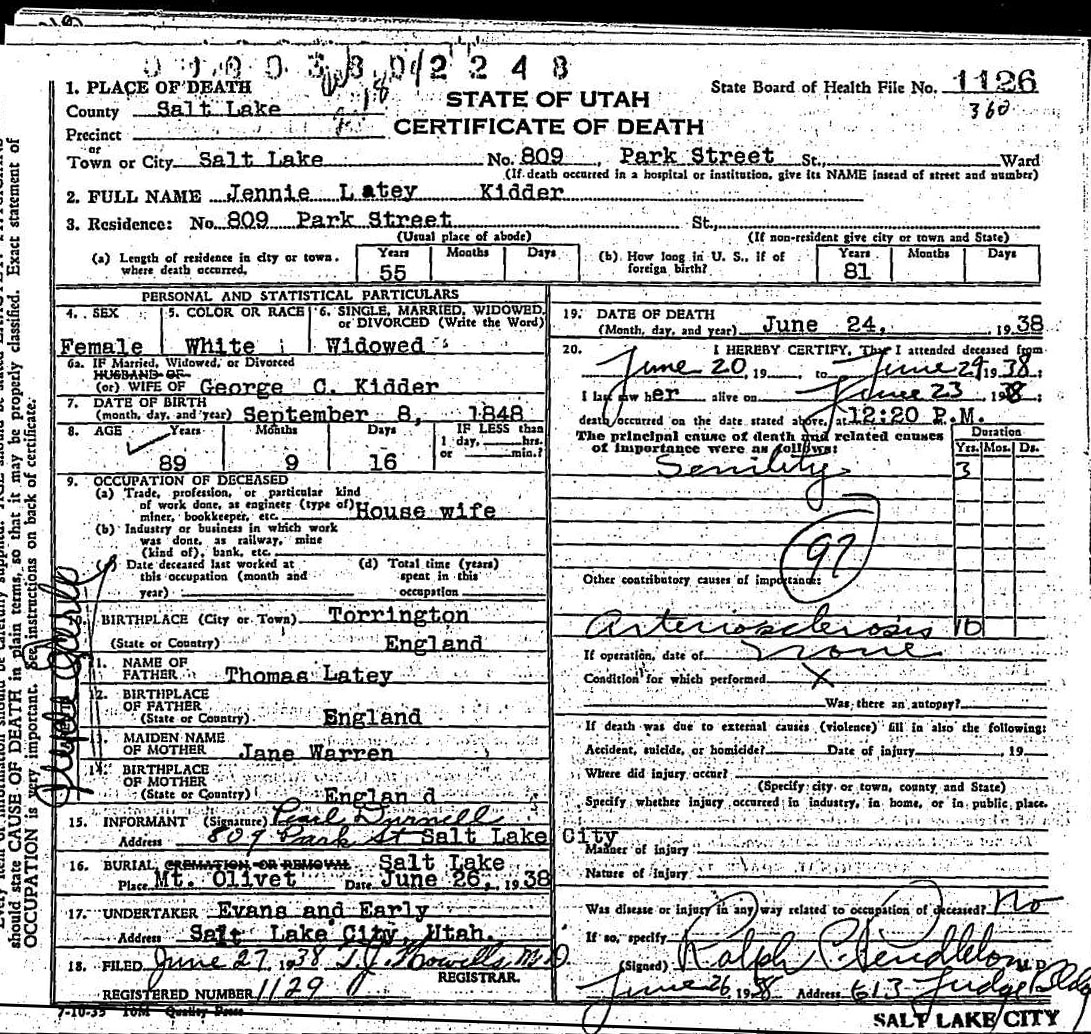 1. PLACE OF DEATH
County Salt Lake
STATE OF UTAH
CERTIFICATE OF DEATH
State Board of Health File No. 1126
360
Precinct
or
Town or City Salt Lake No. 809 Park Street St., Ward
(If death occurred in a hospital or institution, give its NAME insead of street and number)
2. FULL NAME Jennie Latey Kidder
3. Residence: No. 809 Park Street St.,
(Usual place of abode) (If non-resident give city or town and State)
(a) Length of residence in city or town where death occurred. Years 55 Months Days
(b) How long in U. S., if of foreign birth? Years 81 Months Days
PERSONAL AND STATISTICAL PARTICULARS
4. SEX Female
5. COLOR OR RACE White
6. SINGLE, MARRIED, WIDOWED, or DIVORCED (Write the Word) Widowed
6a. IF Married, Widowed, or Divorced
HUSBAND OF
(or) WIFE OF George C. Kidder
7. DATE OF BIRTH
(month, day, and year) September 8, 1848
8. AGE Years Months Days IF LESS than
1 day, hrs.
or min.?
89 9 16
9. OCCUPATION OF DECEASED
(a) Trade, profession, or particular kind
of work done, as engineer (type of)
miner, bookkeeper, etc. House wife
(b) Industry or business in which work
was done, as railway, mine
(kind of), bank, etc.
Date deceased last worked at
this occupation (month and
year)
(d) Total time (years)
spent in this
occupation
10. BIRTHPLACE (City or Town) Torrington
(State or Country) England
11. NAME OF
FATHER Thomas Latey
12. BIRTHPLACE
OF FATHER
(State or Country) England
13. MAIDEN NAME
OF MOTHER Jane Warren
14. BIRTHPLACE
OF MOTHER
(State or Country) Englan d
15. INFORMANT (Signature) Pearl Durnell
Address 809 Park St Salt Lake City
16. BURIAL, CREMATION OR REMOVAL Salt Lake
Place Mt. Olivet Date June 26, 1938
17. UNDERTAKER Evans and Early
Address Salt Lake City, Utah.
18. FILED June 27 1938 T.J. Howells M.D.
REGISTRAR.
REGISTERED NUMBER 1129
7-10-35 10M Quality Press
19. DATE OF DEATH
(Month, day, and year) June 24, 1938
20. I HEREBY CERTIFY, That I attended deceased from
June 20, 19 to June 24 1938:
I last saw her alive on June 23 1938:
death occurred on the date stated above, at 12:20 P.M.
The principal cause of death and related causes
of importance were as follows:
Duration
Yrs. Mos. Ds.
Senility 3
97
Other contributory causes of importance:
Arteriosclerosis 10
If operation, date of none
Condition for which performed X
Was there an autopsy?
If death was due to external causes (violence) fill in also the following:
Accident, suicide, or homicide? Date of injury 19
Where did injury occur?
(Specify city or town, county and State)
Specify whether injury occurred in industry, in home, or in public place.
Manner of injury
Nature of injury
Was disease or injury in any way related to occupation of deceased? No
If so, specify
(Signed) Ralph C. Pendleton M.D.
June 26 1938 Address 613 Judge Bldg
SALT LAKE CITY
should state CAUSE OF DEATH in plain terms, so that it may be properly classified. Exact statement of
OCCUPATION is very important. See instructions on back of certificate.